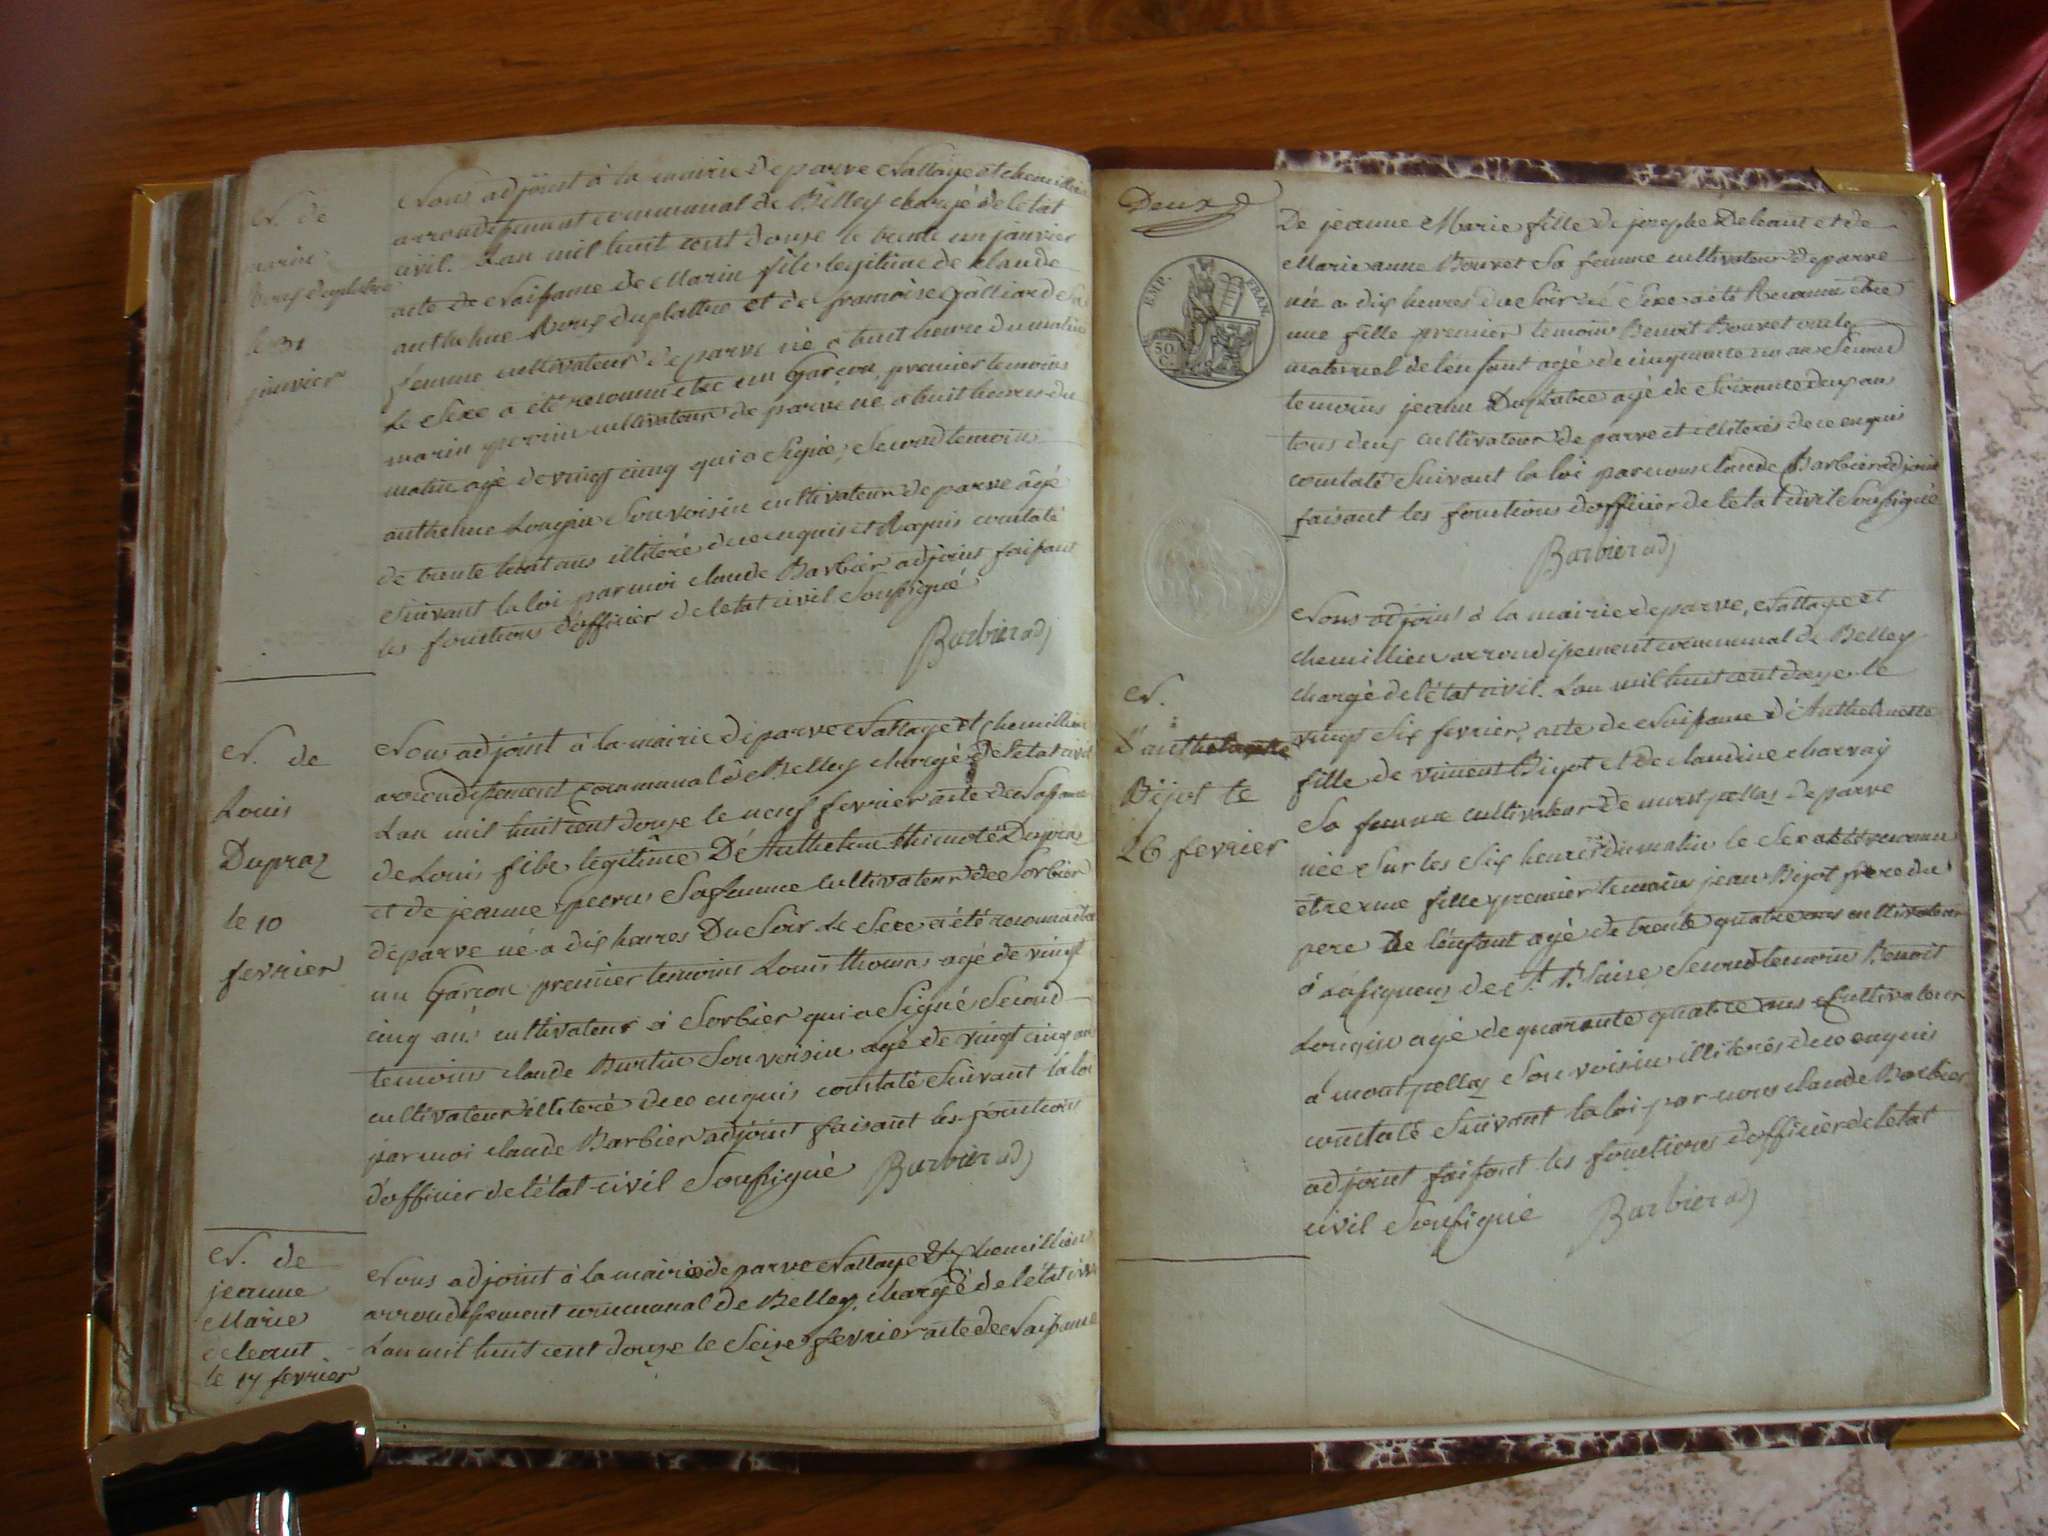 N. de
marin
Roux duplattre
le 31
janvier
Nous adjoint à la mairie de parve Nattage et chemillieu
arrondissement communal de Belley chargé de letat
civil. Lan mil huit cent douze le trente un janvier
acte de Naissame de Marin fils legitime de claude
anthelme Roux duplattre et de francoise Galliard Sa
femme cultivateur de parve né à huit heure du matin
Le Sexe a été reconnu etre un Garcon, premier temoins
marin perrin cultivateur de parve né a huit heures du
matin agé de vingt cinq qui a Signé, Second temoin
anthelme Longin Son voisin cultivateur de parve âgé
de trente huit ans illiteré de ce enquis et Requis contaté
Suivant la loi par moi claude Barbier adjoint faisant
les fonctions d'officier de letat civil Soussigné
Barbier adj
N. de
Louis
Dupraz
le 10
fevrier
Nous adjoint à la mairie de parve Nattage et Chemillieu
arrondissement Communal de Belley chargé de letat civil
Lan mil huit cent douze le neuf fevrier acte de Naissame
de Louis fils legitime D'Anthelme thimoté Dupraz
et de jeanne Sa femme Cultivateur de Sorbier
de parve né a dix heures Du Soir Le Sexe a été reconnu etre
un Garcon premier temoins Louis thomas agé de vingt
cinq ans cultivateur à Sorbier qui a Signé Second
temoins claude Burtin Son voisin agé de vingt cinq ans
cultivateur illiteré de ce enquis contaté Suivant la loi
par moi claude Barbier adjoint faisant les fonctions
d'officier de l'état civil Soussigné Barbier adj
N. de
jeanne
Marie
deleaut
le 17 fevrier
Nous adjoint à la mairie de parve Nattage et Chemillieu
arrondissement communal de Belley, chargé de létat civil
Lan mil huit cent douze le Seize fevrier acte de Naissame
Deux
EMP. FRAN.
50 C.
De jeanne Marie fille de josephe Deleaut et de
Marie anne Bouvet Sa femme cultivateur de parve
née a dix heures du Soir le Sexe a été Reconnu etre
une fille premier temoins Benoit Bouvet oncle
maternel de lenfant agé de cinquante un an Second
temoins jeann Duplatre agé de Soixante deux an
tous deux cultivateur de parve et illiterés de ce enquis
contaté Suivant la loi par nous claude Barbier adjoint
faisant les fonctions d'officier de letat civil Soussigné
Barbier adj
N.
D'anthelmette
Bijot le
26 fevrier
Nous adjoint à la mairie de parve, Nattage et
chemillieu arrondissement communal de Belley
chargé de l'état civil. Lan mil huit cent douze le
vingt Six fevrier, acte de Naissame d'Anthelmette
fille de vincent Bijot et de claudine charvaij
Sa femme cultivateur de montpellaz de parve
née Sur les Six heures du matin le Sexe a été reconnu
etre une fille premier temoin jean Bijot frere du
pere De lénfant agé de trente quatre ans cultivateur
à de St. Blaise Second temoin Benoit
Longin agé de quarante quatre ans Cultivateur
à montpellaz Son voisin illiterés de ce enquis
contaté Suivant la loi par nous claude Barbier
adjoint faisant les fonctions d'officier de letat
civil Soussigné Barbier adj